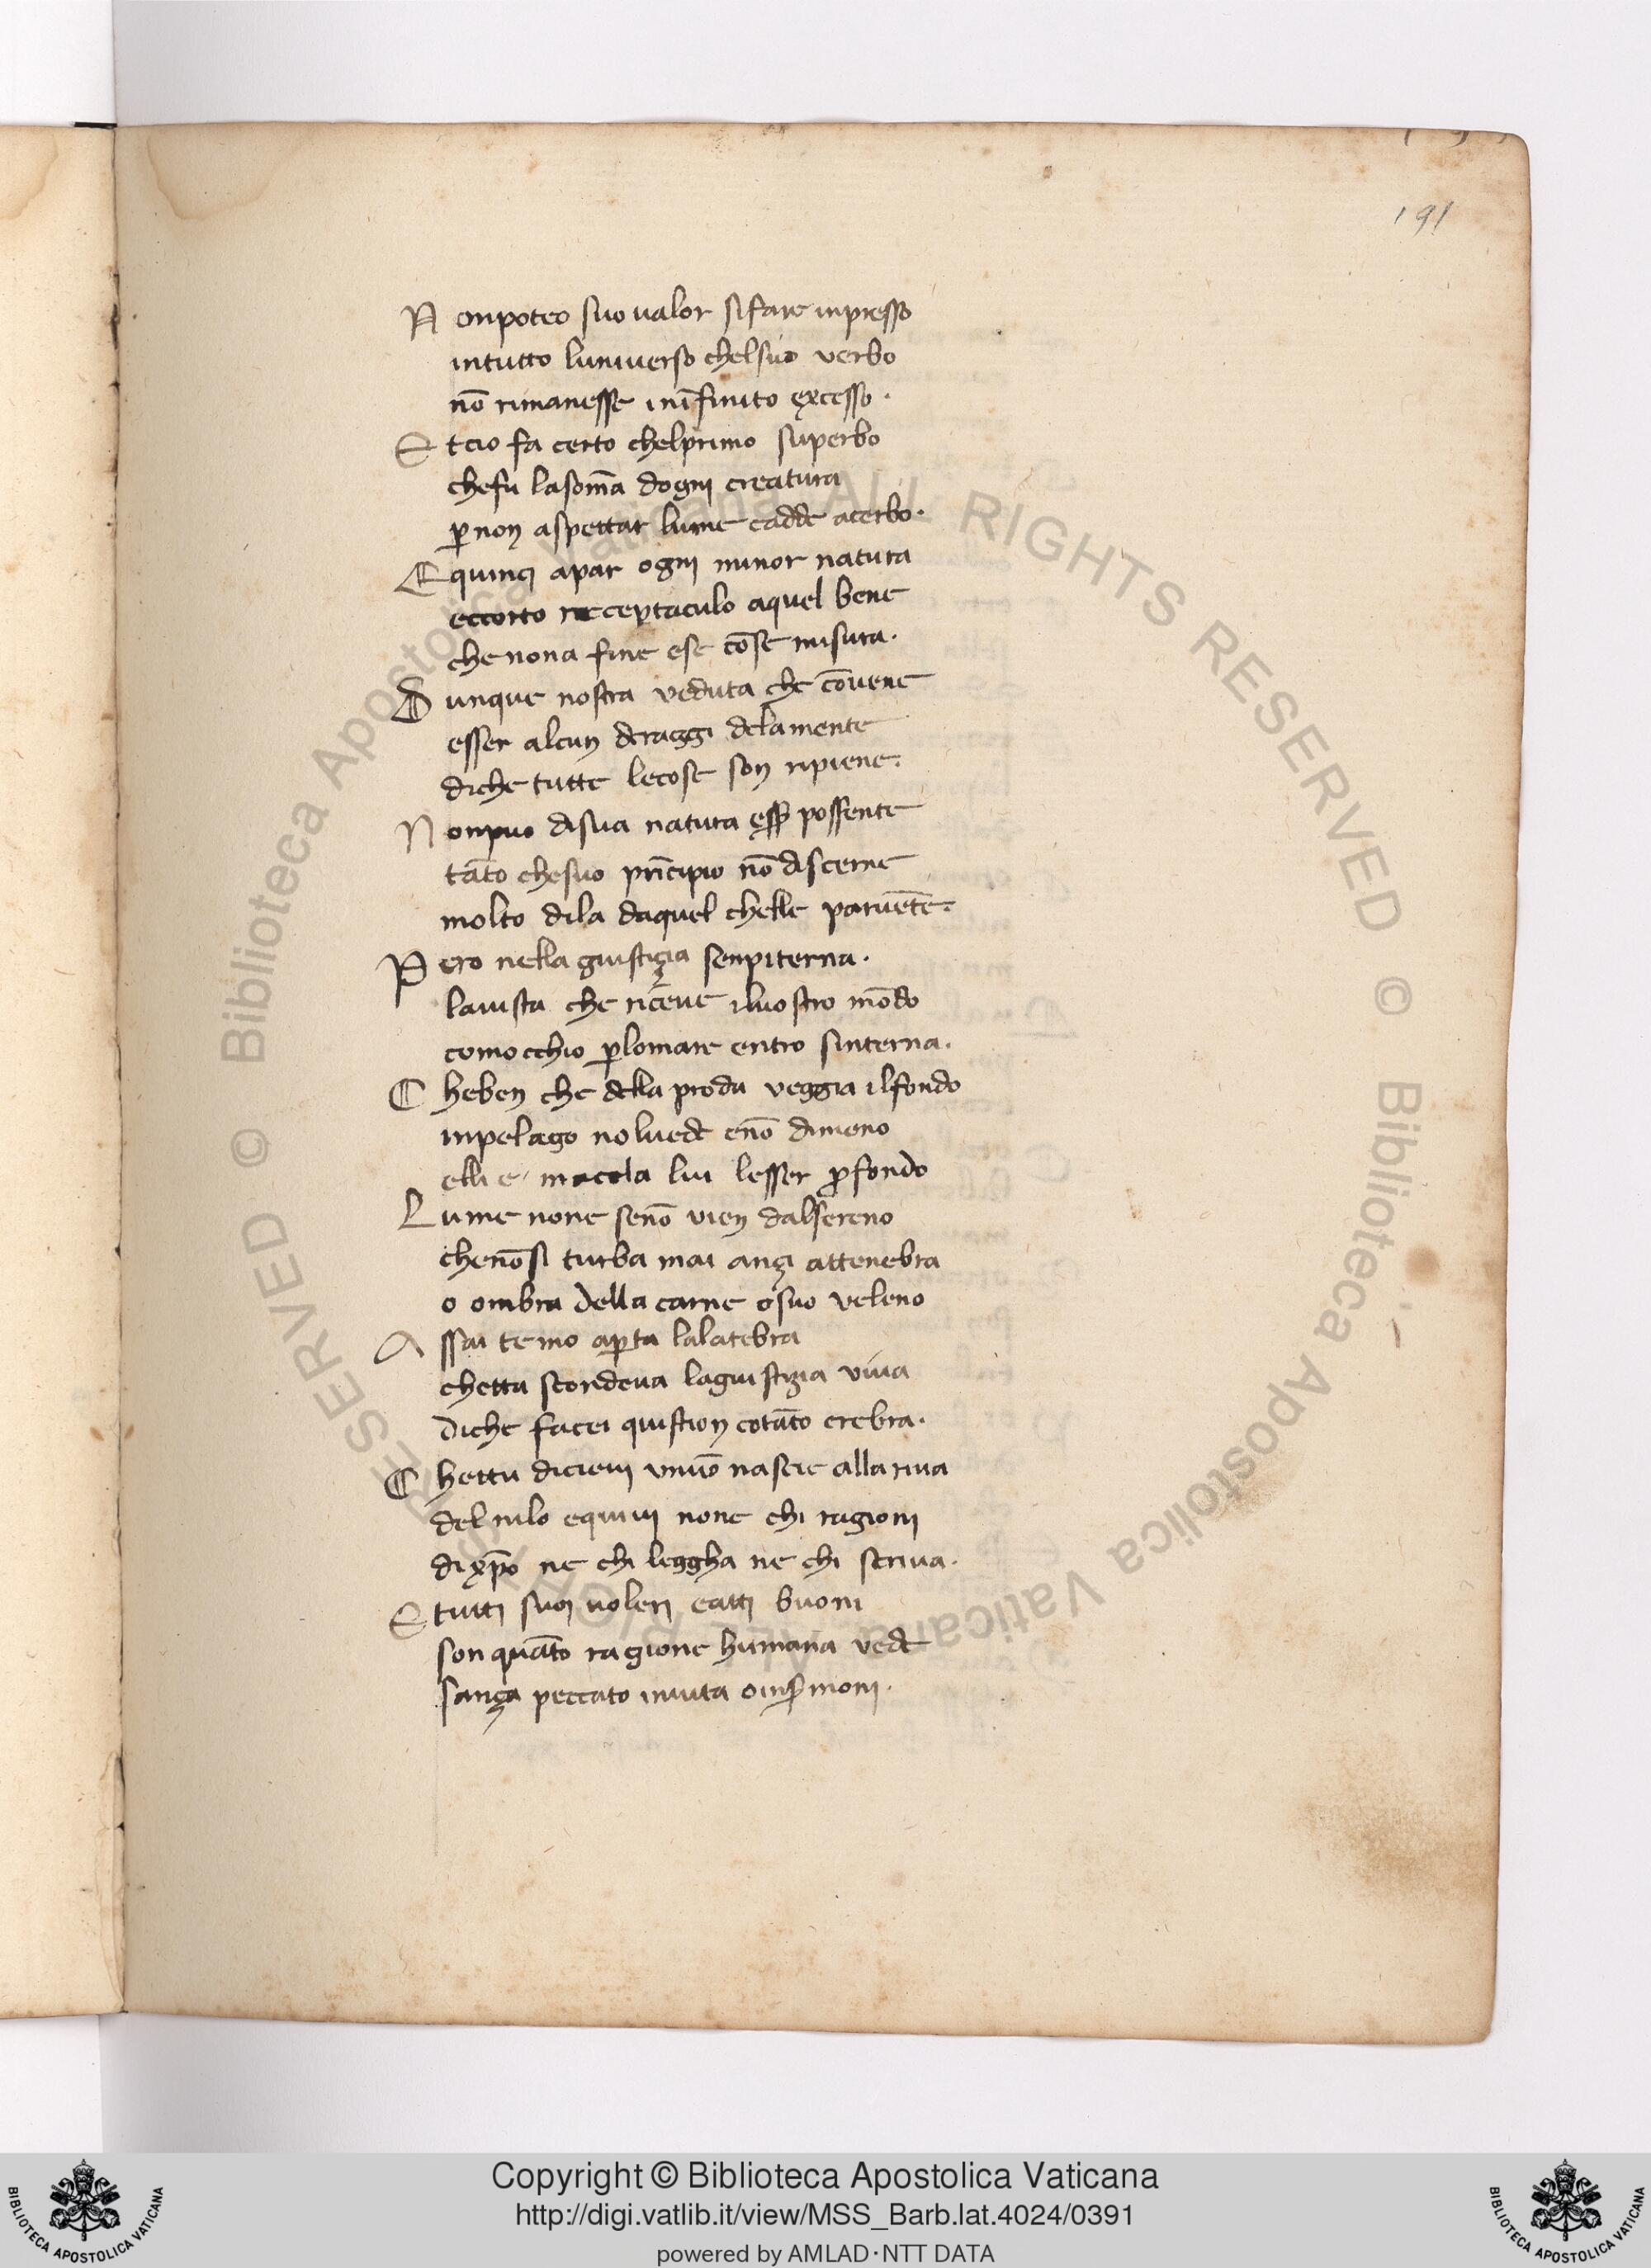 191
N onpoteo suo ualor sifare inpresso
intutto luniuerso chelsuo verbo
nō rimanesse inīfinito excesso ·
E tcio fa certo chelprimo superbo
chefu lasom̄a dogni creatura
ꝑnon aspettar lume cadde acerbo ·
E quinci apar ogni minor natura
eccorto receptaculo aquel bene
che nona fine ese cōse misura ·
D unque nostra veduta che cōuene
esser alcun deraggi delamente
diche tutte lecose son ripiene ·
N onpuo disua natura ess̄ possente
tāto chesuo prīcipio nō discerne
molto dila daquel chelle paruēte ·
P ero nella giustiçia senpiterna ·
lauista che riceue iluostro mōdo
comocchio ꝑlomare entro sinterna ·
C heben che della proda veggia ilfondo
inpelago noluede enō dimeno
elli e macola lui lesser ꝓfondo
L ume none senō vien dalsereno
chenōsi turba mai ançi attenebra
o ombra della carne osuo veleno
A ssai temo aꝑta lalatebra
chetta scondeua lagiustizia viua
diche facei quistion cotāto crebra ·
C hettu diciem vnuō nascie alla riua
del nilo equiui none chi ragioni
di xp̄o ne chi leggha ne chi scriua ·
E tutti suoi uoleri eatti buoni
son quāto ragione humana vede
sança peccato inuita oinsꝑmoni ·
© Biblioteca Apostolica Vaticana ALL RIGHTS RESERVED © Biblioteca Apostolica Vaticana ALL RIGHTS RESERVED
Copyright © Biblioteca Apostolica Vaticana
http://digi.vatlib.it/view/MSS_Barb.lat.4024/0391
powered by AMLAD·NTT DATA
BIBLIOTECA APOSTOLICA VATICANA
BIBLIOTECA APOSTOLICA VATICANA